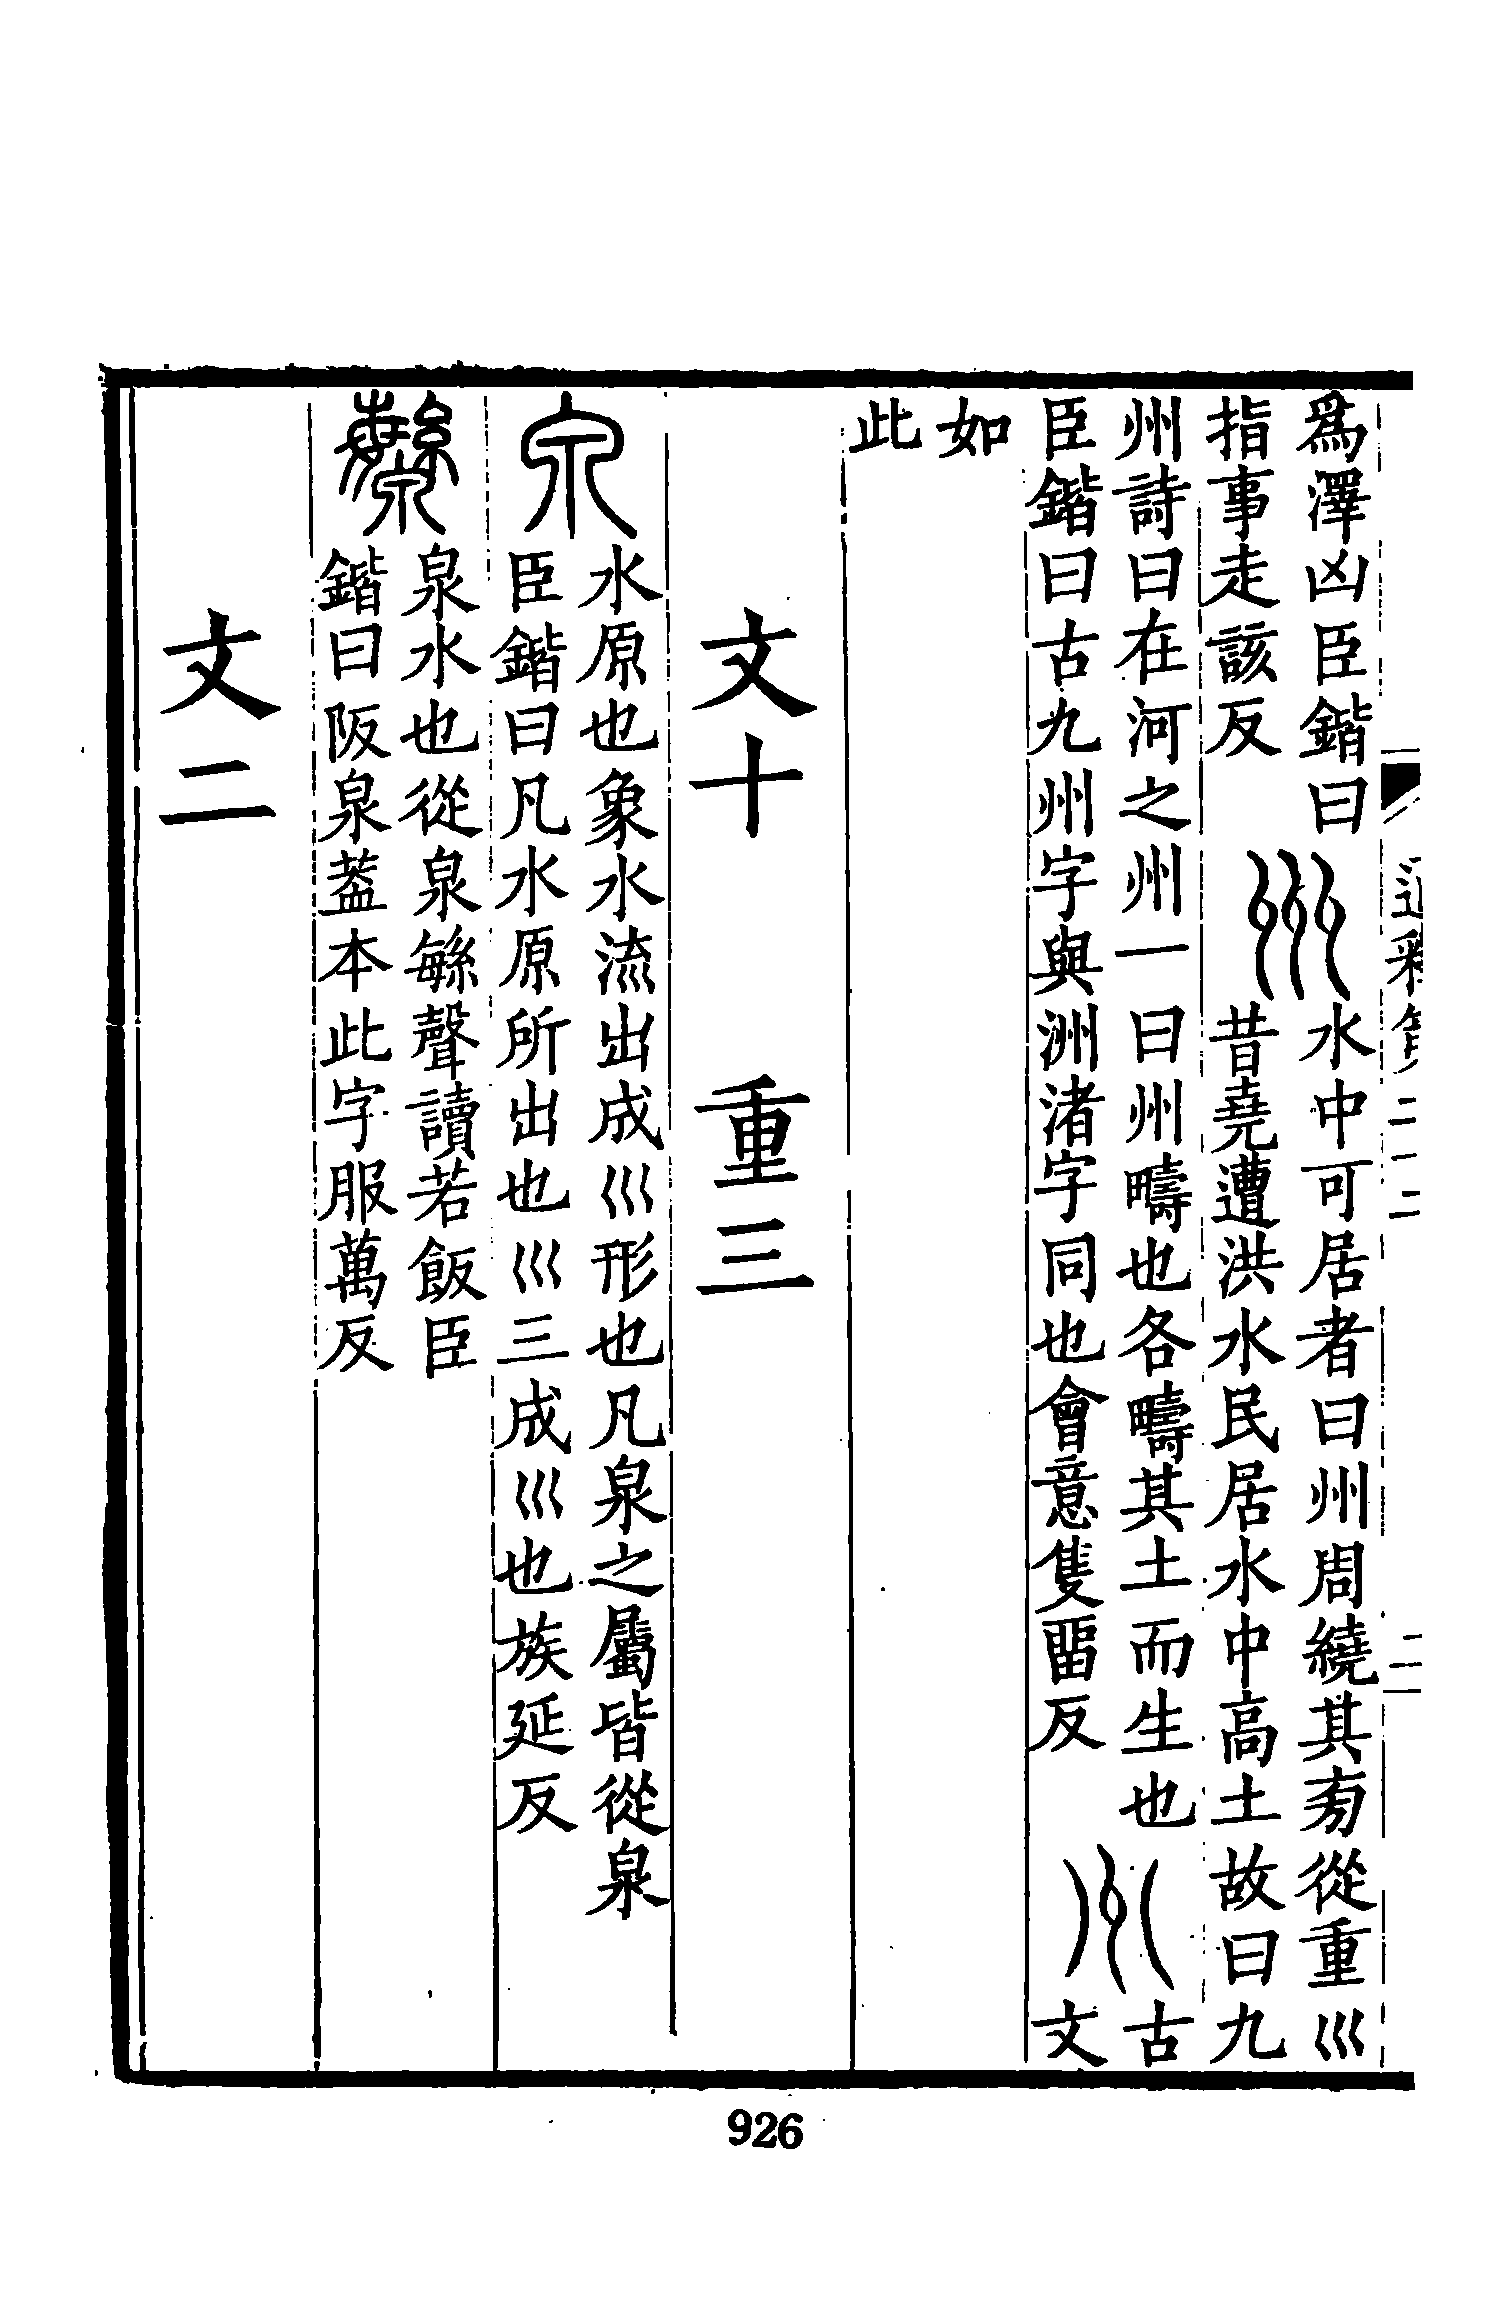 爲澤凶臣鍇曰
指事走該反
州
水中可居者曰州周繞其㫄從重巛
昔堯遭洪水民居水中高土故曰九
州詩曰在河之州一曰州疇也各疇其土而生也
臣鍇曰古九州字與洲渚字同也會意隻畱反
州
古
文
如
此
文十　重三
泉
水原也象水流出成巛形也凡泉之屬皆從泉
臣鍇曰凡水原所出也巛三成巛也族延反
泉水也從泉緐聲讀若飯臣
鍇曰阪泉葢本此字服萬反
文二
926